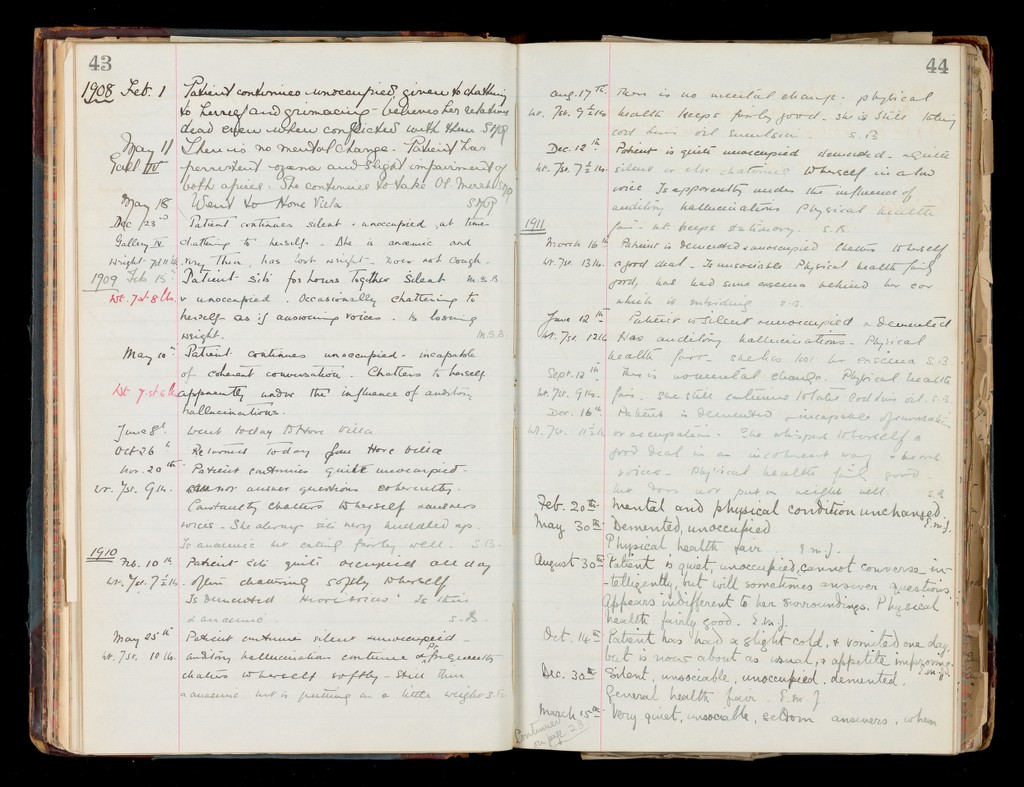 43
1908 Feb. 1 Patient continues unoccupied, given to chattering
to herself and grimacing – believes her relations
dead even when conflicted with them
May 11 There is no mental change. Patient has
Gall IV persistent ozaena and slight impairment of
both apices. She continues to take Ol. Morrh
May 18 Went to Hove Villa
Dec 23rd Patient continues silent & unoccupied, at times
Gallery IV chattering to herself. She is anæmic and
Weight 7st 11 lbs very thin, has lost weight – does not cough.
1909 Feb 15th Patient sits for hours together silent M.S.B.
Wt. 7st 8 lbs & unoccupied. Occasionally chattering to
herself as if answering voices. Is losing
weight. M.S.B.
May 10th Patient continues unoccupied – incapable
of coherent conversation. Chatters to herself
Wt 7st 6 lbs apparently under the influence of auditory
hallucinations.
June 8th Went today to Hove Villa
Oct 26th Returned today from Hove Villa
Nov. 20th Patient continues quite unoccupied –
Wt. 7st. 9 lbs. cannot answer questions coherently.
Constantly chatters to herself & answers
voices – She always sits very huddled up.
Is anæmic but eating fairly well. S.B.
1910
Feb. 10th Patient sits quite occupied all day
Wt. 7st. 7½ lbs. often chattering softly to herself
Is demented. Hears voices. Is thin
& anæmic. S.B.
May 25th Patient continues silent & unoccupied –
Wt. 7st. 10 lbs. auditory hallucinations continue & Pt. frequently
chatters to herself softly – still thin
& anæmic but is putting on a little weight S.B.
44
Aug. 17th There is no mental change – physical
Wt. 7st. 9½ lbs health keeps fairly good – she is still taking
cod liver oil emulsion. S.B.
Dec. 12th Patient is quite unoccupied demented – quite
Wt. 7st. 7½ lbs. silent or else chattering to herself in a low
voice. Is apparently under the influence of
auditory hallucinations. Physical health
1911 fair – wt keeps stationary. S.B.
March 16th Patient is demented & unoccupied. Chatters to herself
Wt. 7st 13 lbs. a good deal – Is unsociable. Physical health fairly
good, has had some eczema behind her ear
which is subsiding S.B.
June 12th Patient is silent & unoccupied & demented
Wt. 7st 12 lbs Has auditory hallucinations – Physical
health fair – she has lost her eczema S.B.
Sept. 12th There is no mental change. Physical health
Wt. 7st. 9 lbs. fair. She still continues to take Cod liver oil. S.B.
Dec. 16th Patient is demented & incapable of conversation
Wt. 7st. 11½ lbs or occupation. She whispers to herself a
good deal in an incoherent way & hears
voices – Physical health fairly good
but does not put on weight well. S.B.
Feb. 20th Mental and physical condition unchanged. E.M.J.
May 30th Demented, unoccupied
Physical health fair. E.M.J.
August 30th Patient is quiet, unoccupied, cannot converse in-
-telligently, but will sometimes answer questions
Appears indifferent to her surroundings. Physical
health fairly good. E.M.J.
Oct. 14th Patient has had a slight cold, & vomited one day,
but is now about as usual, & appetite improving. E.M.J.
Dec. 30th Silent, unsociable, unoccupied, demented.
General health fair. E.M.J.
March 15th Very quiet, unsociable, seldom answers, when
Continued
on page 23